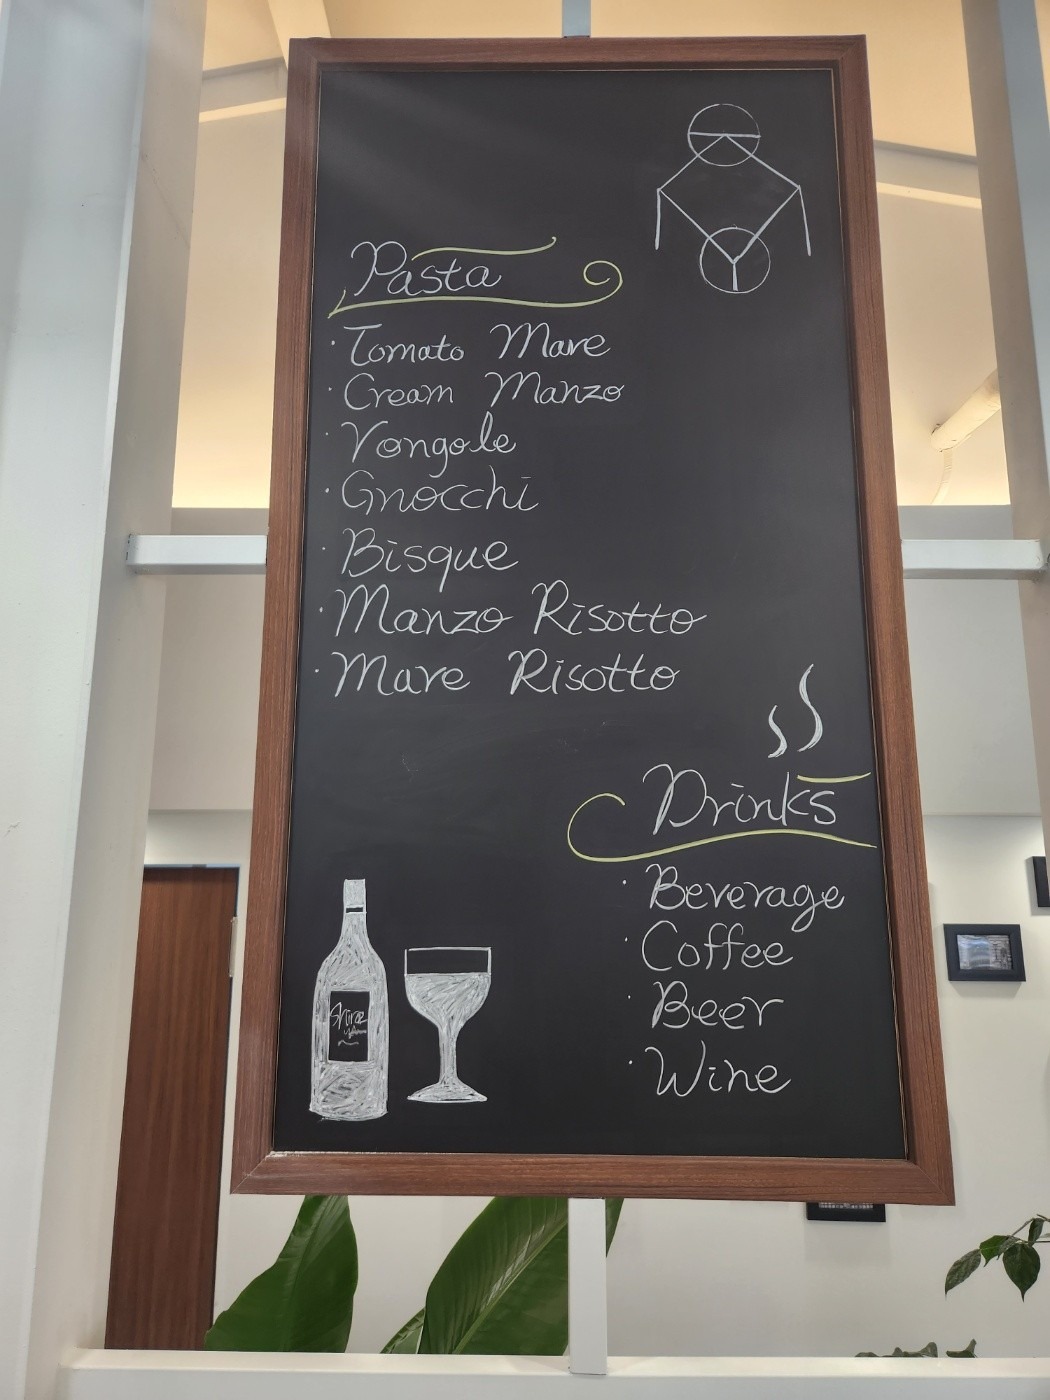 Pasta
· Tomato Mare
· Cream Manzo
· Vongole
· Gnocchi
· Bisque
· Manzo Risotto
· Mare Risotto
Drinks
· Beverage
· Coffee
· Beer
· Wine
Shiraz